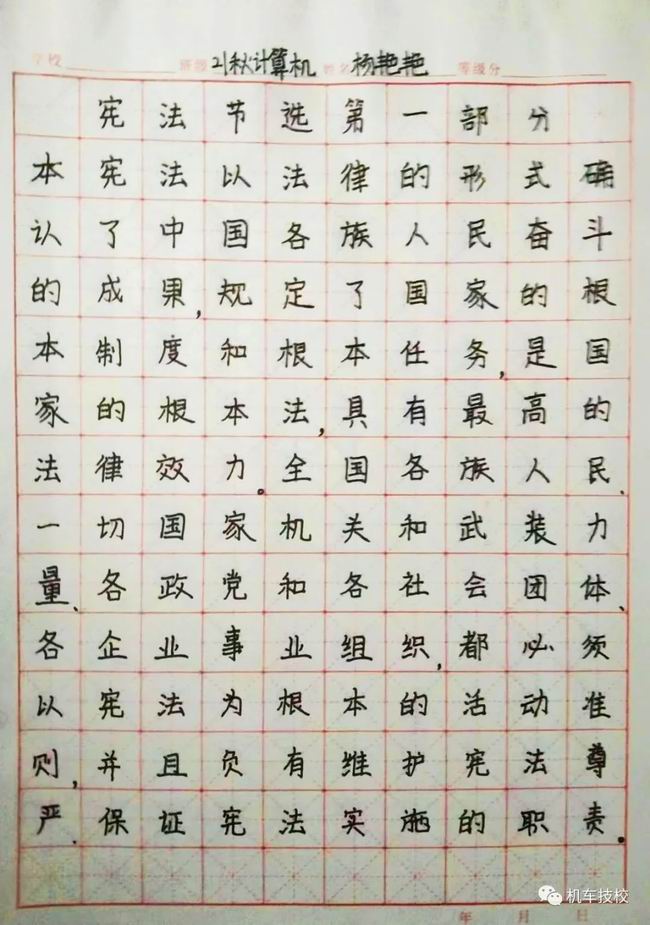 学校 班级 21秋计算机 姓名 杨艳艳 等级分
宪法节选第一部分
本宪法以法律的形式确
认了中国各族人民奋斗
的成果,规定了国家的根
本制度和根本任务,是国
家的根本法,具有最高的
法律效力。全国各族人民、
一切国家机关和武装力
量、各政党和各社会团体、
各企业事业组织,都必须
以宪法为根本的活动准
则,并且负有维护宪法尊
严、保证宪法实施的职责。
年 月 日
机车技校